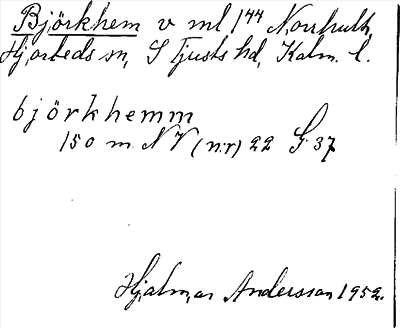 Björkhem v ml 1⁴⁴ Norrhult,
Hjorteds sn, S Tjusts hd, Kalm. l.
björkhemm
150 m NV (n:r) 22 G 37
Hjalmar Andersson 1952.